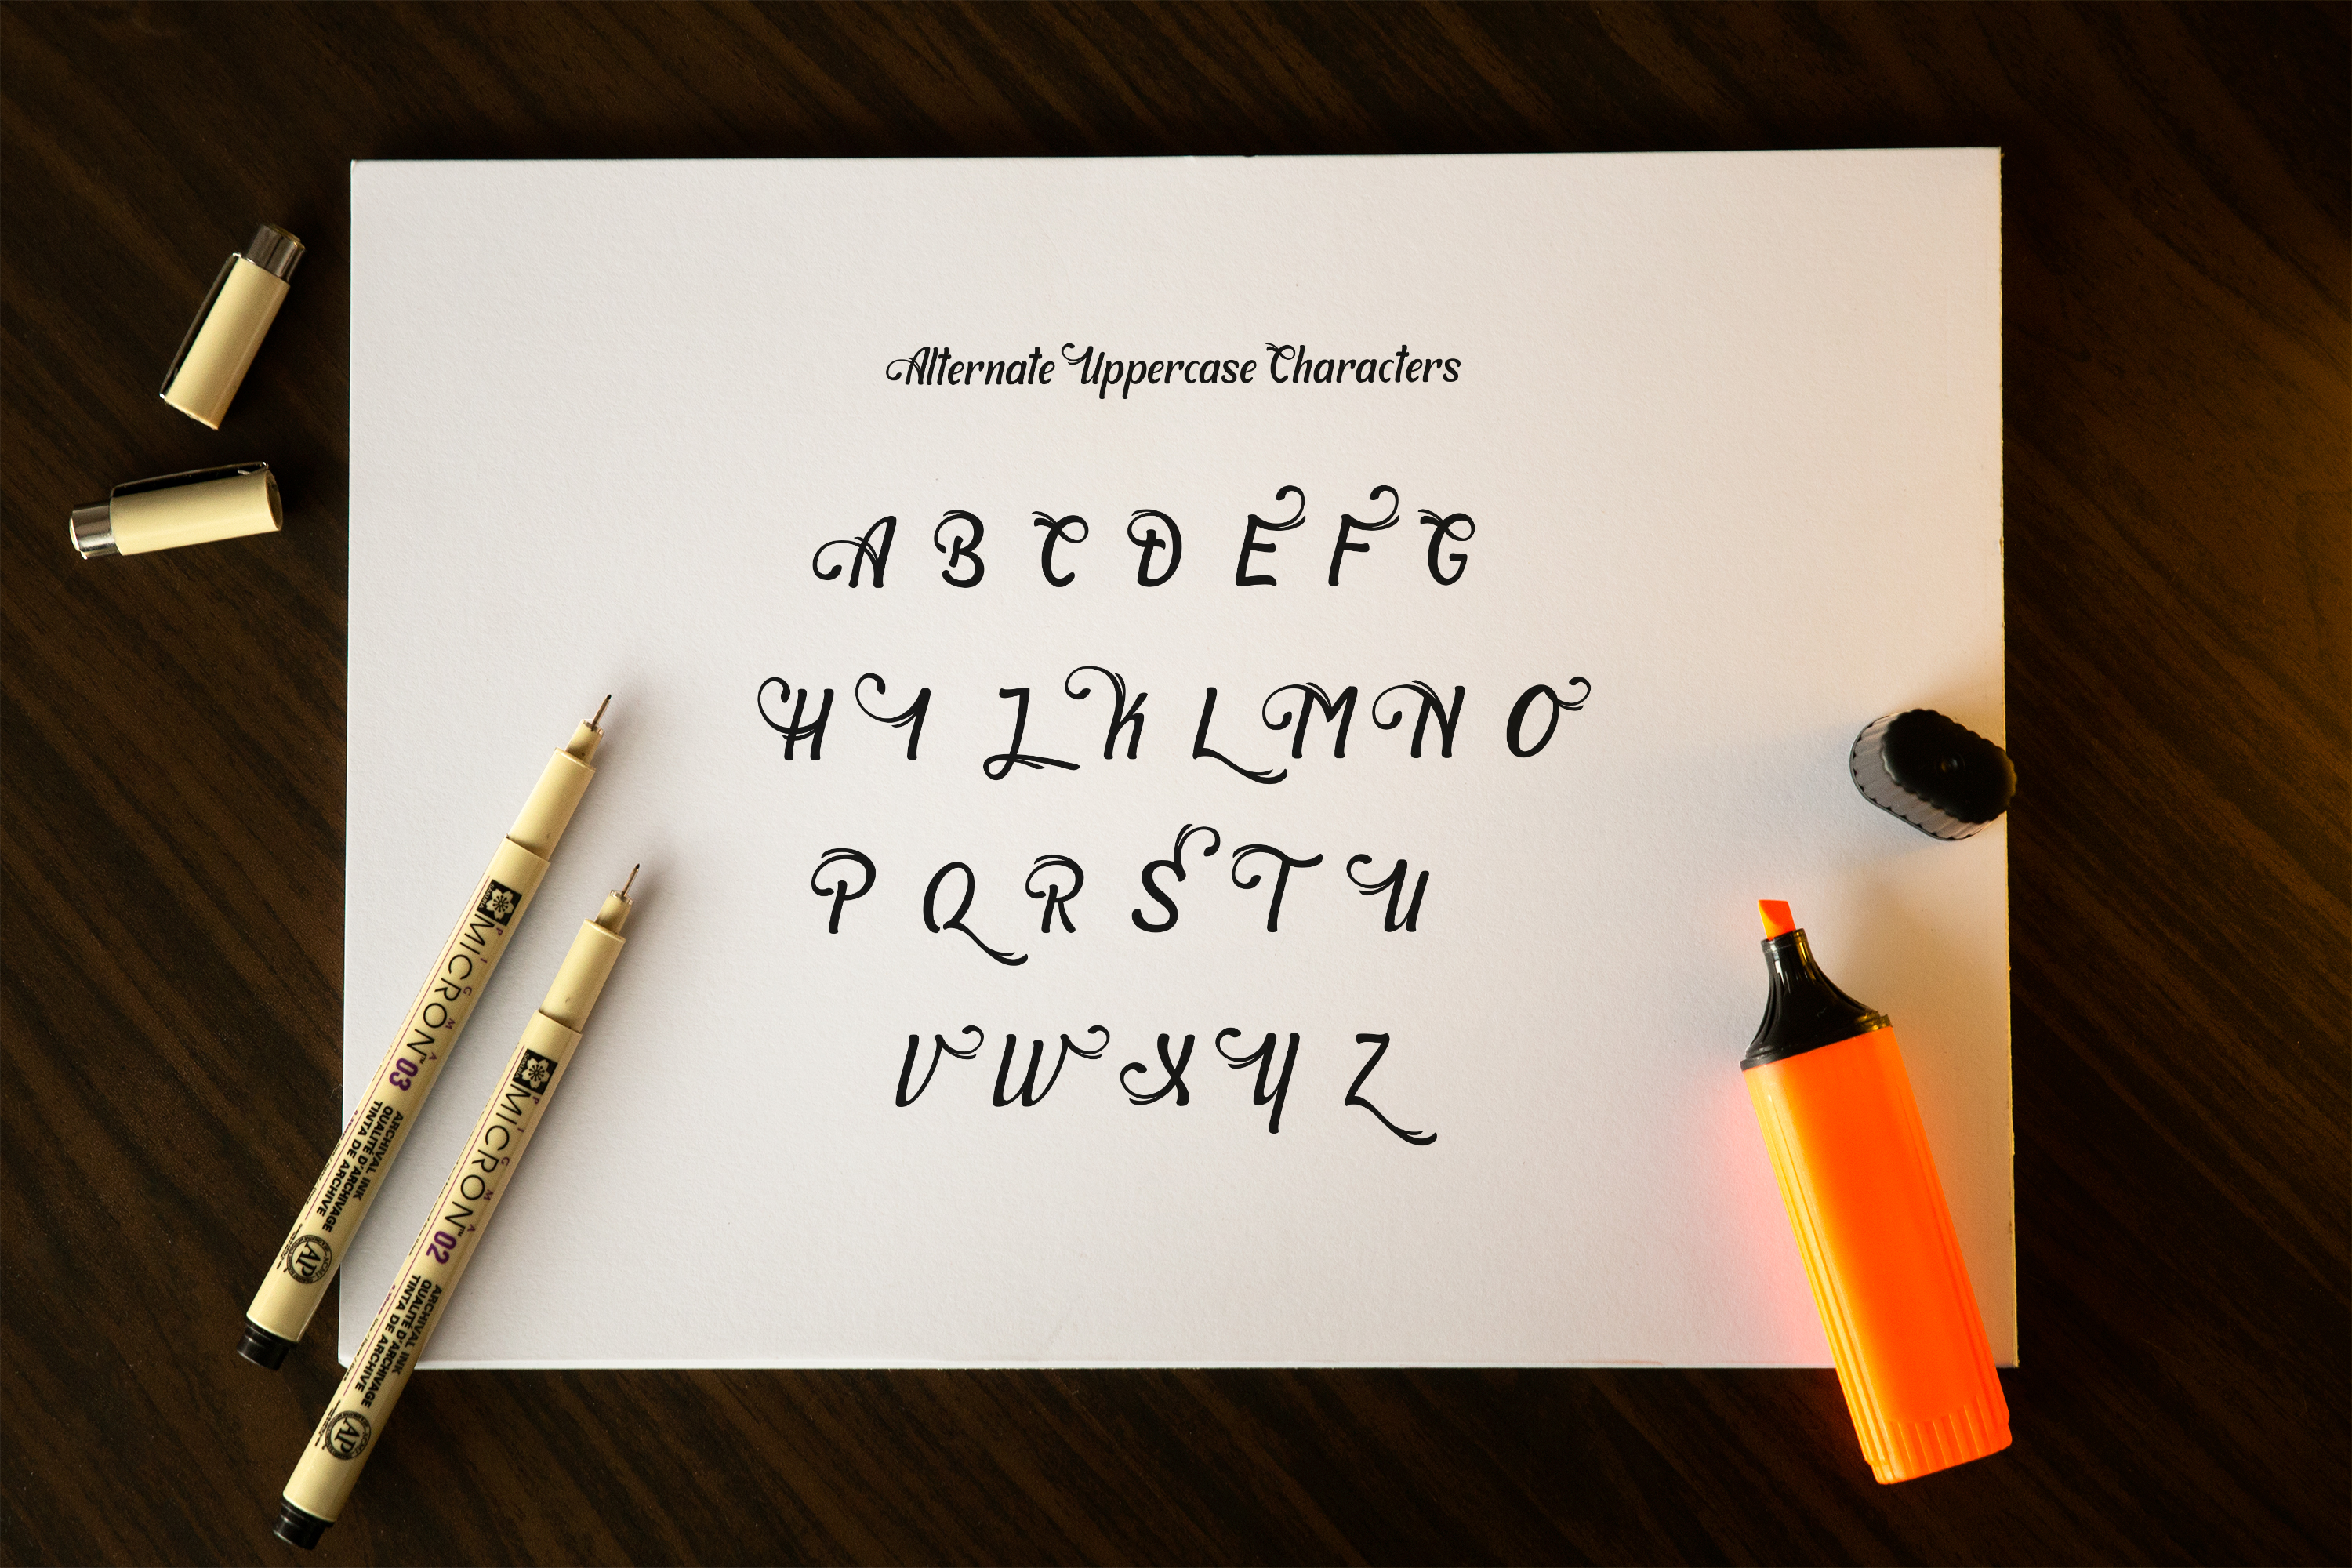 Alternate Uppercase Characters
A B C D E F G
H I J K L M N O
P Q R S T U
V W X Y Z
PIGMA
MICRON™ 03
ARCHIVAL INK
QUALITÉ D'ARCHIVAGE
TINTA DE ARCHIVE
AP
PIGMA
MICRON™ 02
ARCHIVAL INK
QUALITÉ D'ARCHIVAGE
TINTA DE ARCHIVE
AP